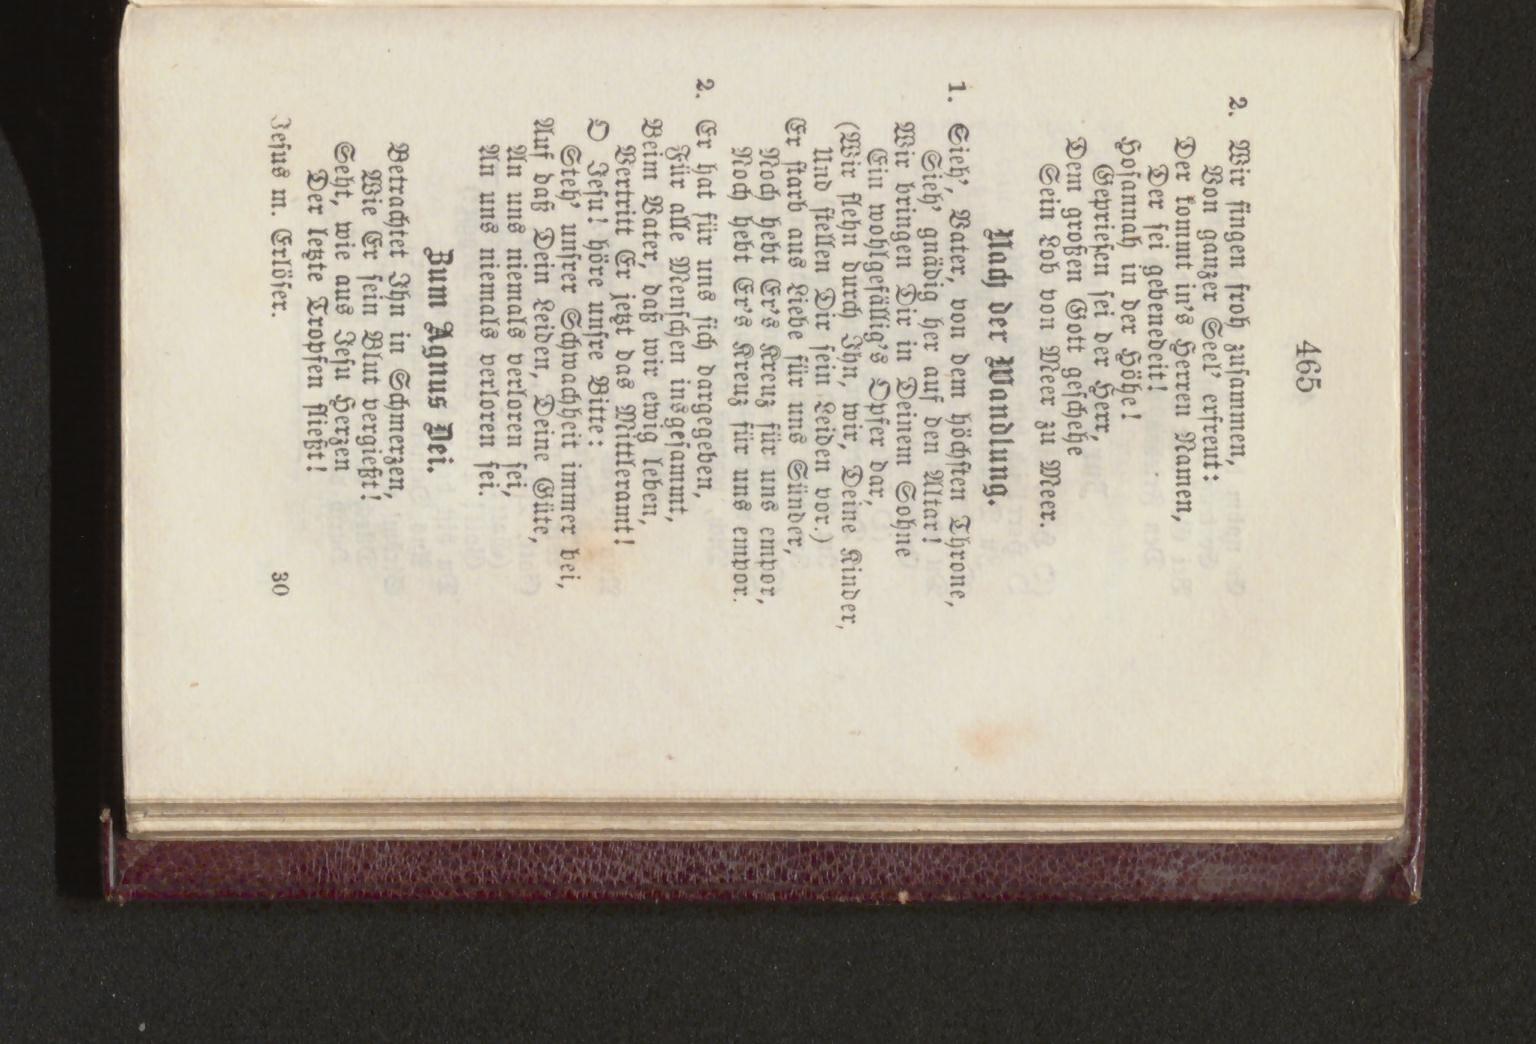 465
2. Wir singen froh zusammen,
Von ganzer Seel' erfreut:
Der kommt in's Herren Namen,
Der sei gebenedeit!
Hosannah in der Höhe!
Gepriesen sei der Herr,
Dem großen Gott geschehe
Sein Lob von Meer zu Meer.
Nach der Wandlung.
1. Sieh', Vater, von dem höchsten Throne,
Sieh' gnädig her auf den Altar!
Wir bringen Dir in Deinem Sohne
Ein wohlgefällig's Opfer dar,
(Wir flehn durch Ihn, wir, Deine Kinder,
Und stellen Dir sein Leiden vor.)
Er starb aus Liebe für uns Sünder,
Noch hebt Er's Kreuz für uns empor,
Noch hebt Er's Kreuz für uns empor.
2. Er hat für uns sich dargegeben,
Für alle Menschen insgesammt,
Beim Vater, daß wir ewig leben,
Vertritt Er jetzt das Mittleramt!
O Jesu! höre unsre Bitte:
Steh' unsrer Schwachheit immer bei,
Auf daß Dein Leiden, Deine Güte,
An uns niemals verloren sei,
An uns niemals verloren sei.
Zum Agnus Dei.
Betrachtet Ihn in Schmerzen,
Wie Er sein Blut vergießt!
Seht, wie aus Jesu Herzen
Der letzte Tropfen fließt!
Jesus m. Erlöser. 30